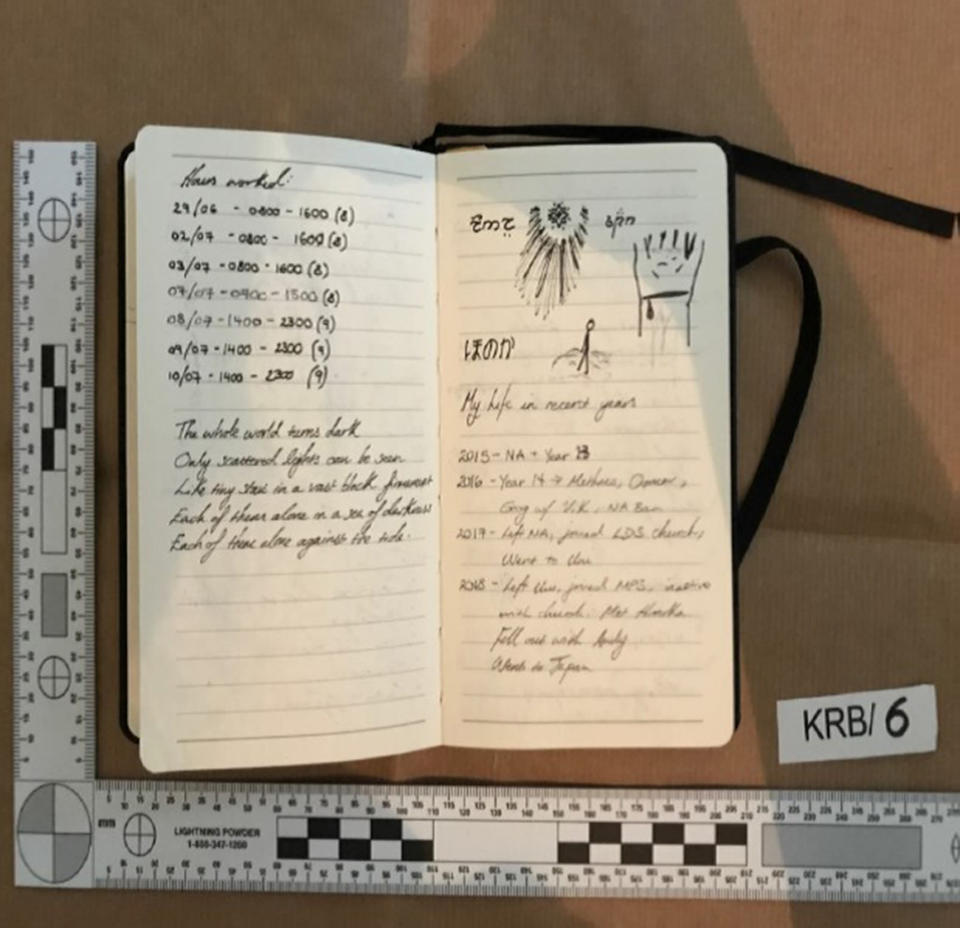 Hours worked:
29/06 - 0800 - 1600 (8)
02/07 - 0800 - 1600 (8)
03/07 - 0800 - 1600 (8)
07/07 - 0700 - 1500 (8)
08/07 - 1400 - 2300 (9)
09/07 - 1400 - 2300 (9)
10/07 - 1400 - 2300 (9)
The whole world turns dark
Only scattered lights can be seen
Like tiny stars in a vast black firmament
Each of them alone in a sea of darkness
Each of them alone against the tide.
ほのか
My life in recent years
2015 - NA - Year 13
2016 - Year 14 →
w/ V.K, NA Ban
2017 - Left NA, joined LDS church,
Went to Uni
2018 - Left Uni, joined MPS, inactive
with church. Met Honoka
Fell out with Andy
Went to Japan
KRB/6
mm
LIGHTNING POWDER
1-800-347-1200